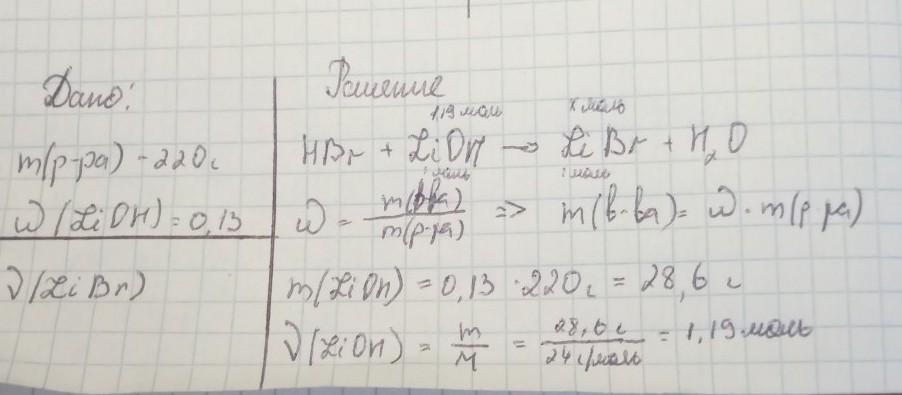 Дано:
m(р-ра) - 220г
ω(LiOH) = 0,13
ν(LiBr)
Решение
1,19 моль x моль
HBr + LiOH → LiBr + H₂O
1 моль 1 моль
ω = m(в-ва) / m(р-ра) => m(в-ва) = ω · m(р-ра)
m(LiOH) = 0,13 · 220г = 28,6 г
ν(LiOH) = m / M = 28,6г / 24г/моль = 1,19 моль